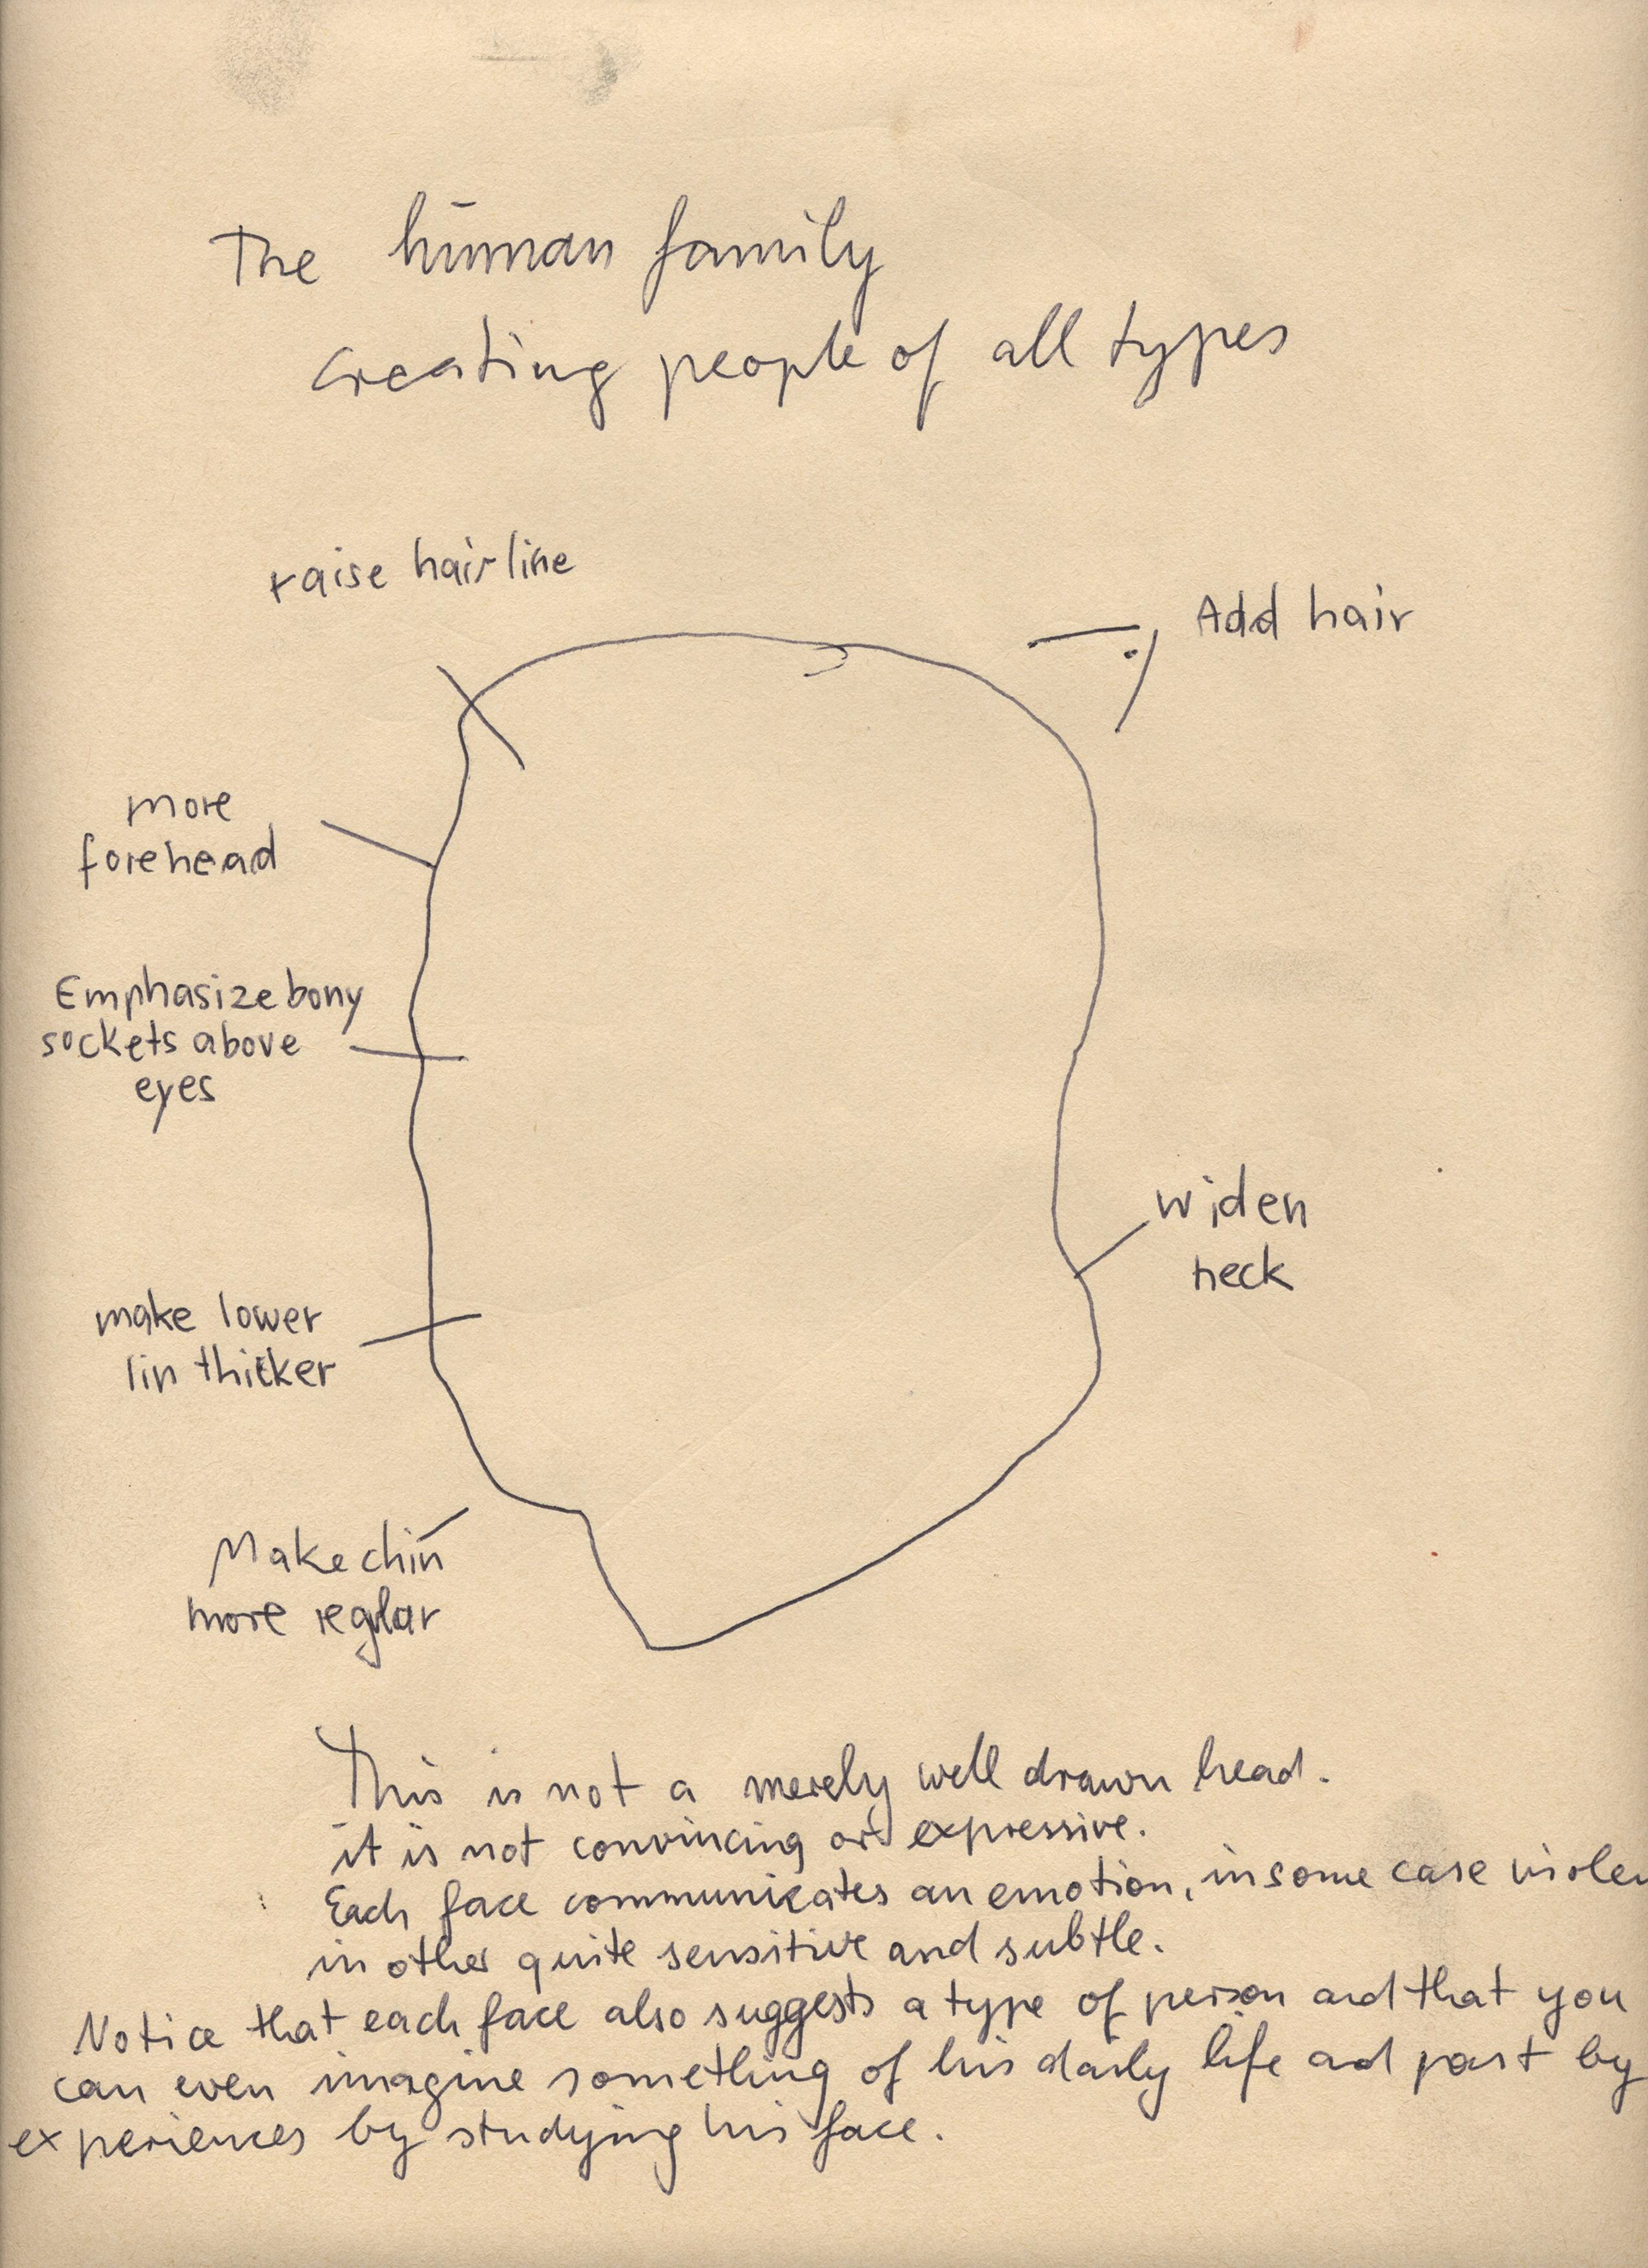 The human family
creating people of all types
raise hairline
Add hair
more
forehead
Emphasize bony
sockets above
eyes
widen
neck
make lower
lin thicker
Make chin
more reglar
This is not a merely well drawn head.
it is not convincing or expressive.
Each face communicates an emotion, in some case violen
in other quite sensitive and subtle.
Notice that each face also suggests a type of person and that you
can even imagine something of his daily life and past by
experiences by studying his face.